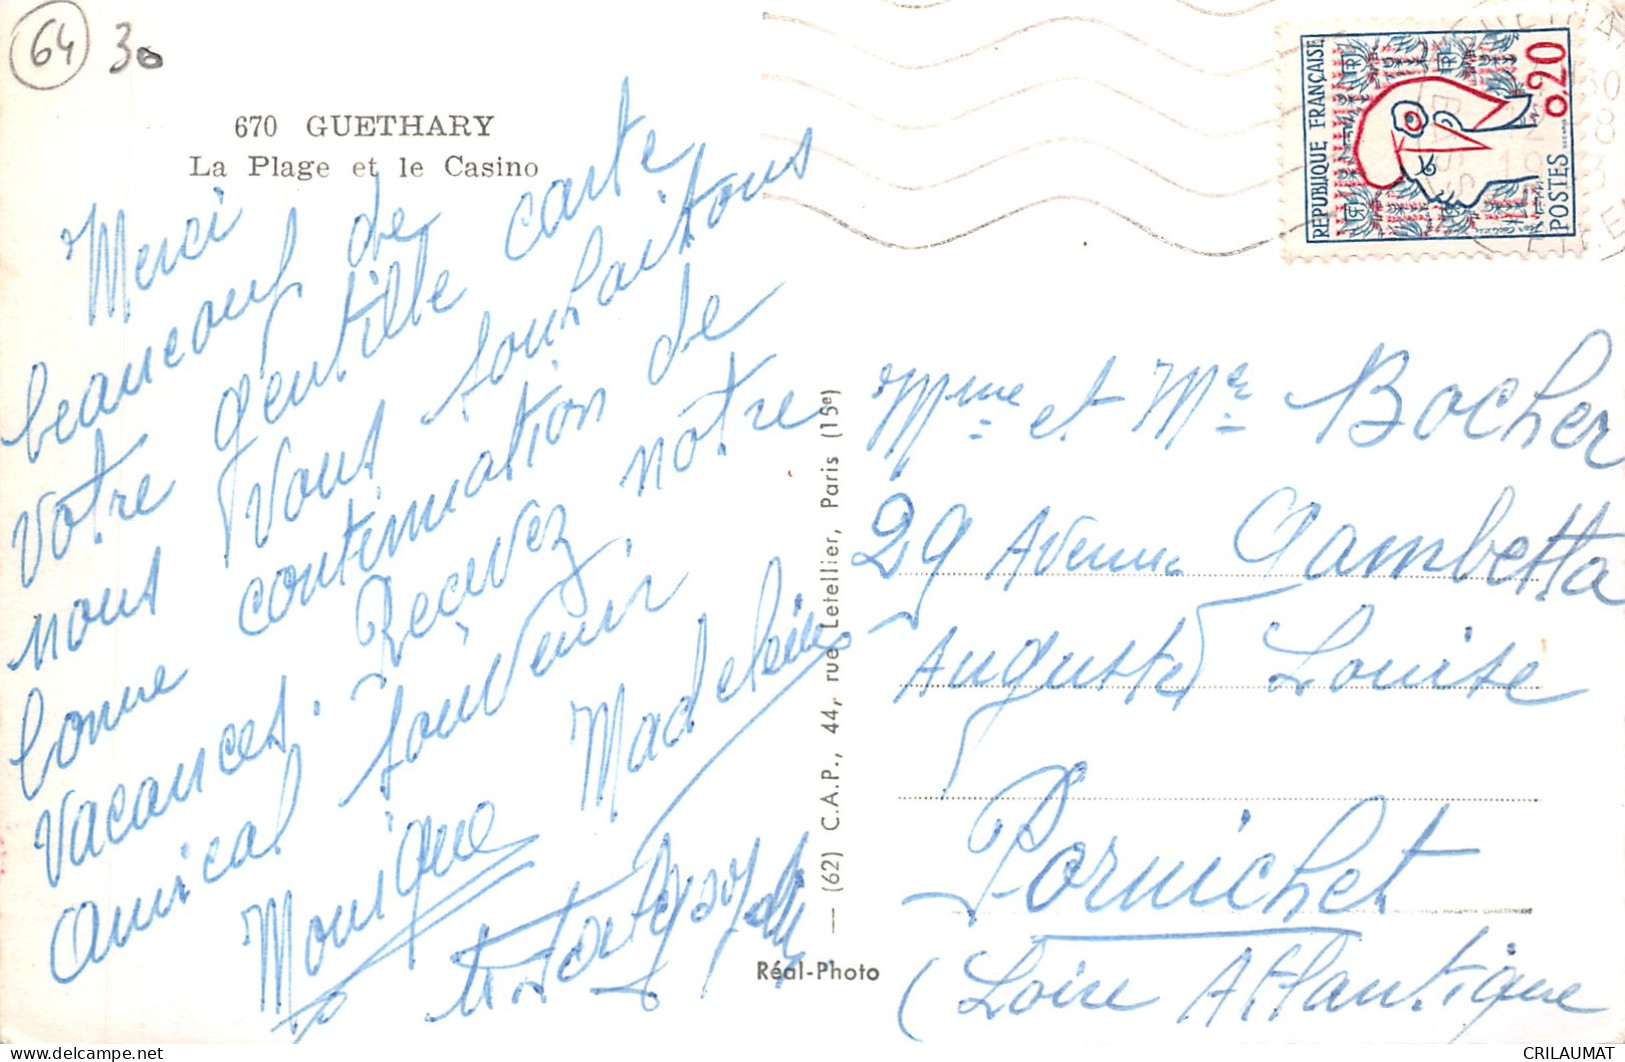 64 30
670 GUETHARY
La Plage et le Casino
Merci
beaucoup de
votre gentille carte
nous vous souhaitons
bonne continuation de
vacances. Recevez notre
amical souvenir
Monique Madeleine
(62) C.A.P., 44, rue Letellier, Paris (15e)
Réal-Photo
REPUBLIQUE FRANÇAISE
0.20
POSTES
Mme et Mr Bocher
29 Avenue Gambetta
Auguste Louise
Pornichet
(Loire Atlantique
CRILAUMAT